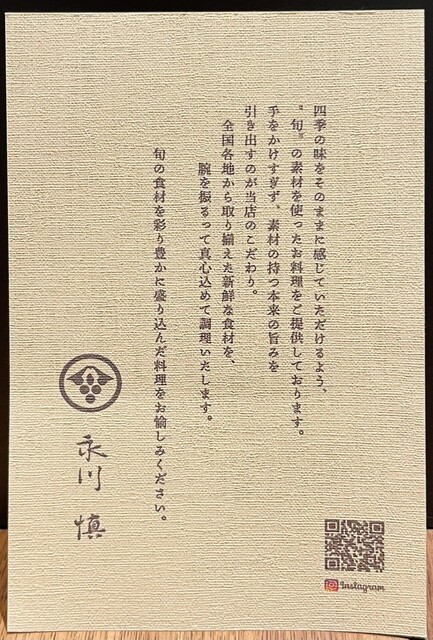 四季の味をそのままに感じていただけるよう、
〝旬〟の素材を使ったお料理をご提供しております。
手をかけすぎず、素材の持つ本来の旨みを
引き出すのが当店のこだわり。
全国各地から取り揃えた新鮮な食材を、
腕を振るって真心込めて調理いたします。
旬の食材を彩り豊かに盛り込んだ料理をお愉しみください。
永川 慎
Instagram